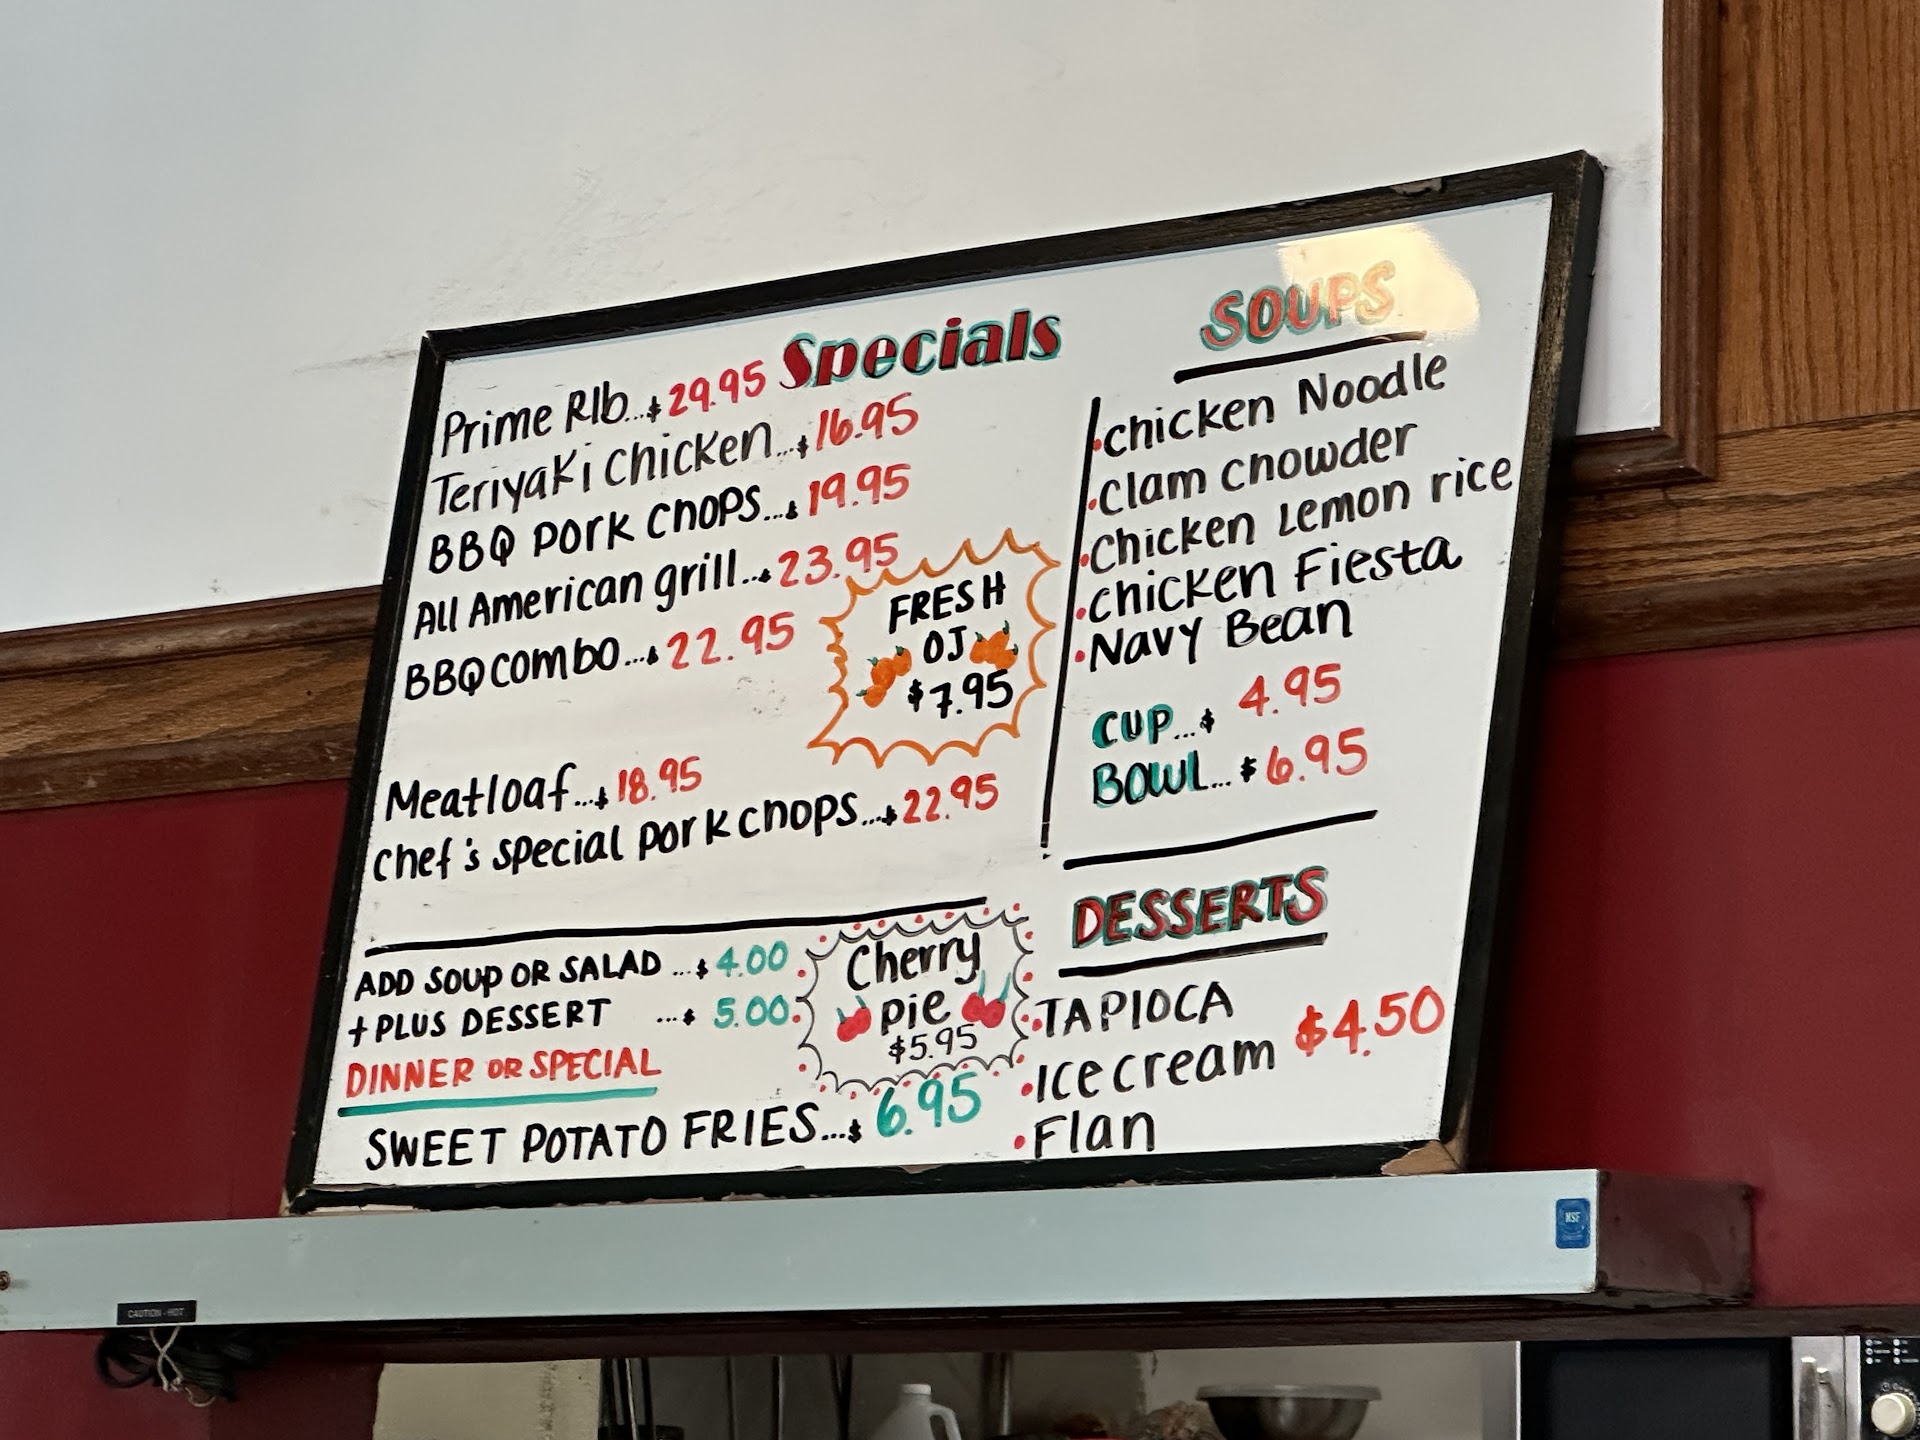 Specials
Prime RIb...$29.95
Teriyaki Chicken...$16.95
BBQ pork chops...$19.95
All American grill...$23.95
BBQ combo...$22.95
FRESH
OJ
$7.95
Meatloaf...$18.95
Chef's special pork chops...$22.95
ADD SOUP OR SALAD ...$4.00
+ PLUS DESSERT ...$5.00
DINNER OR SPECIAL
Cherry
pie
$5.95
SWEET POTATO FRIES...$6.95
SOUPS
•chicken Noodle
•Clam chowder
•Chicken Lemon rice
•chicken Fiesta
•Navy Bean
CUP...$4.95
BOWL...$6.95
DESSERTS
•TAPIOCA
•Ice cream $4.50
•Flan
NSF
CAUTION - HOT